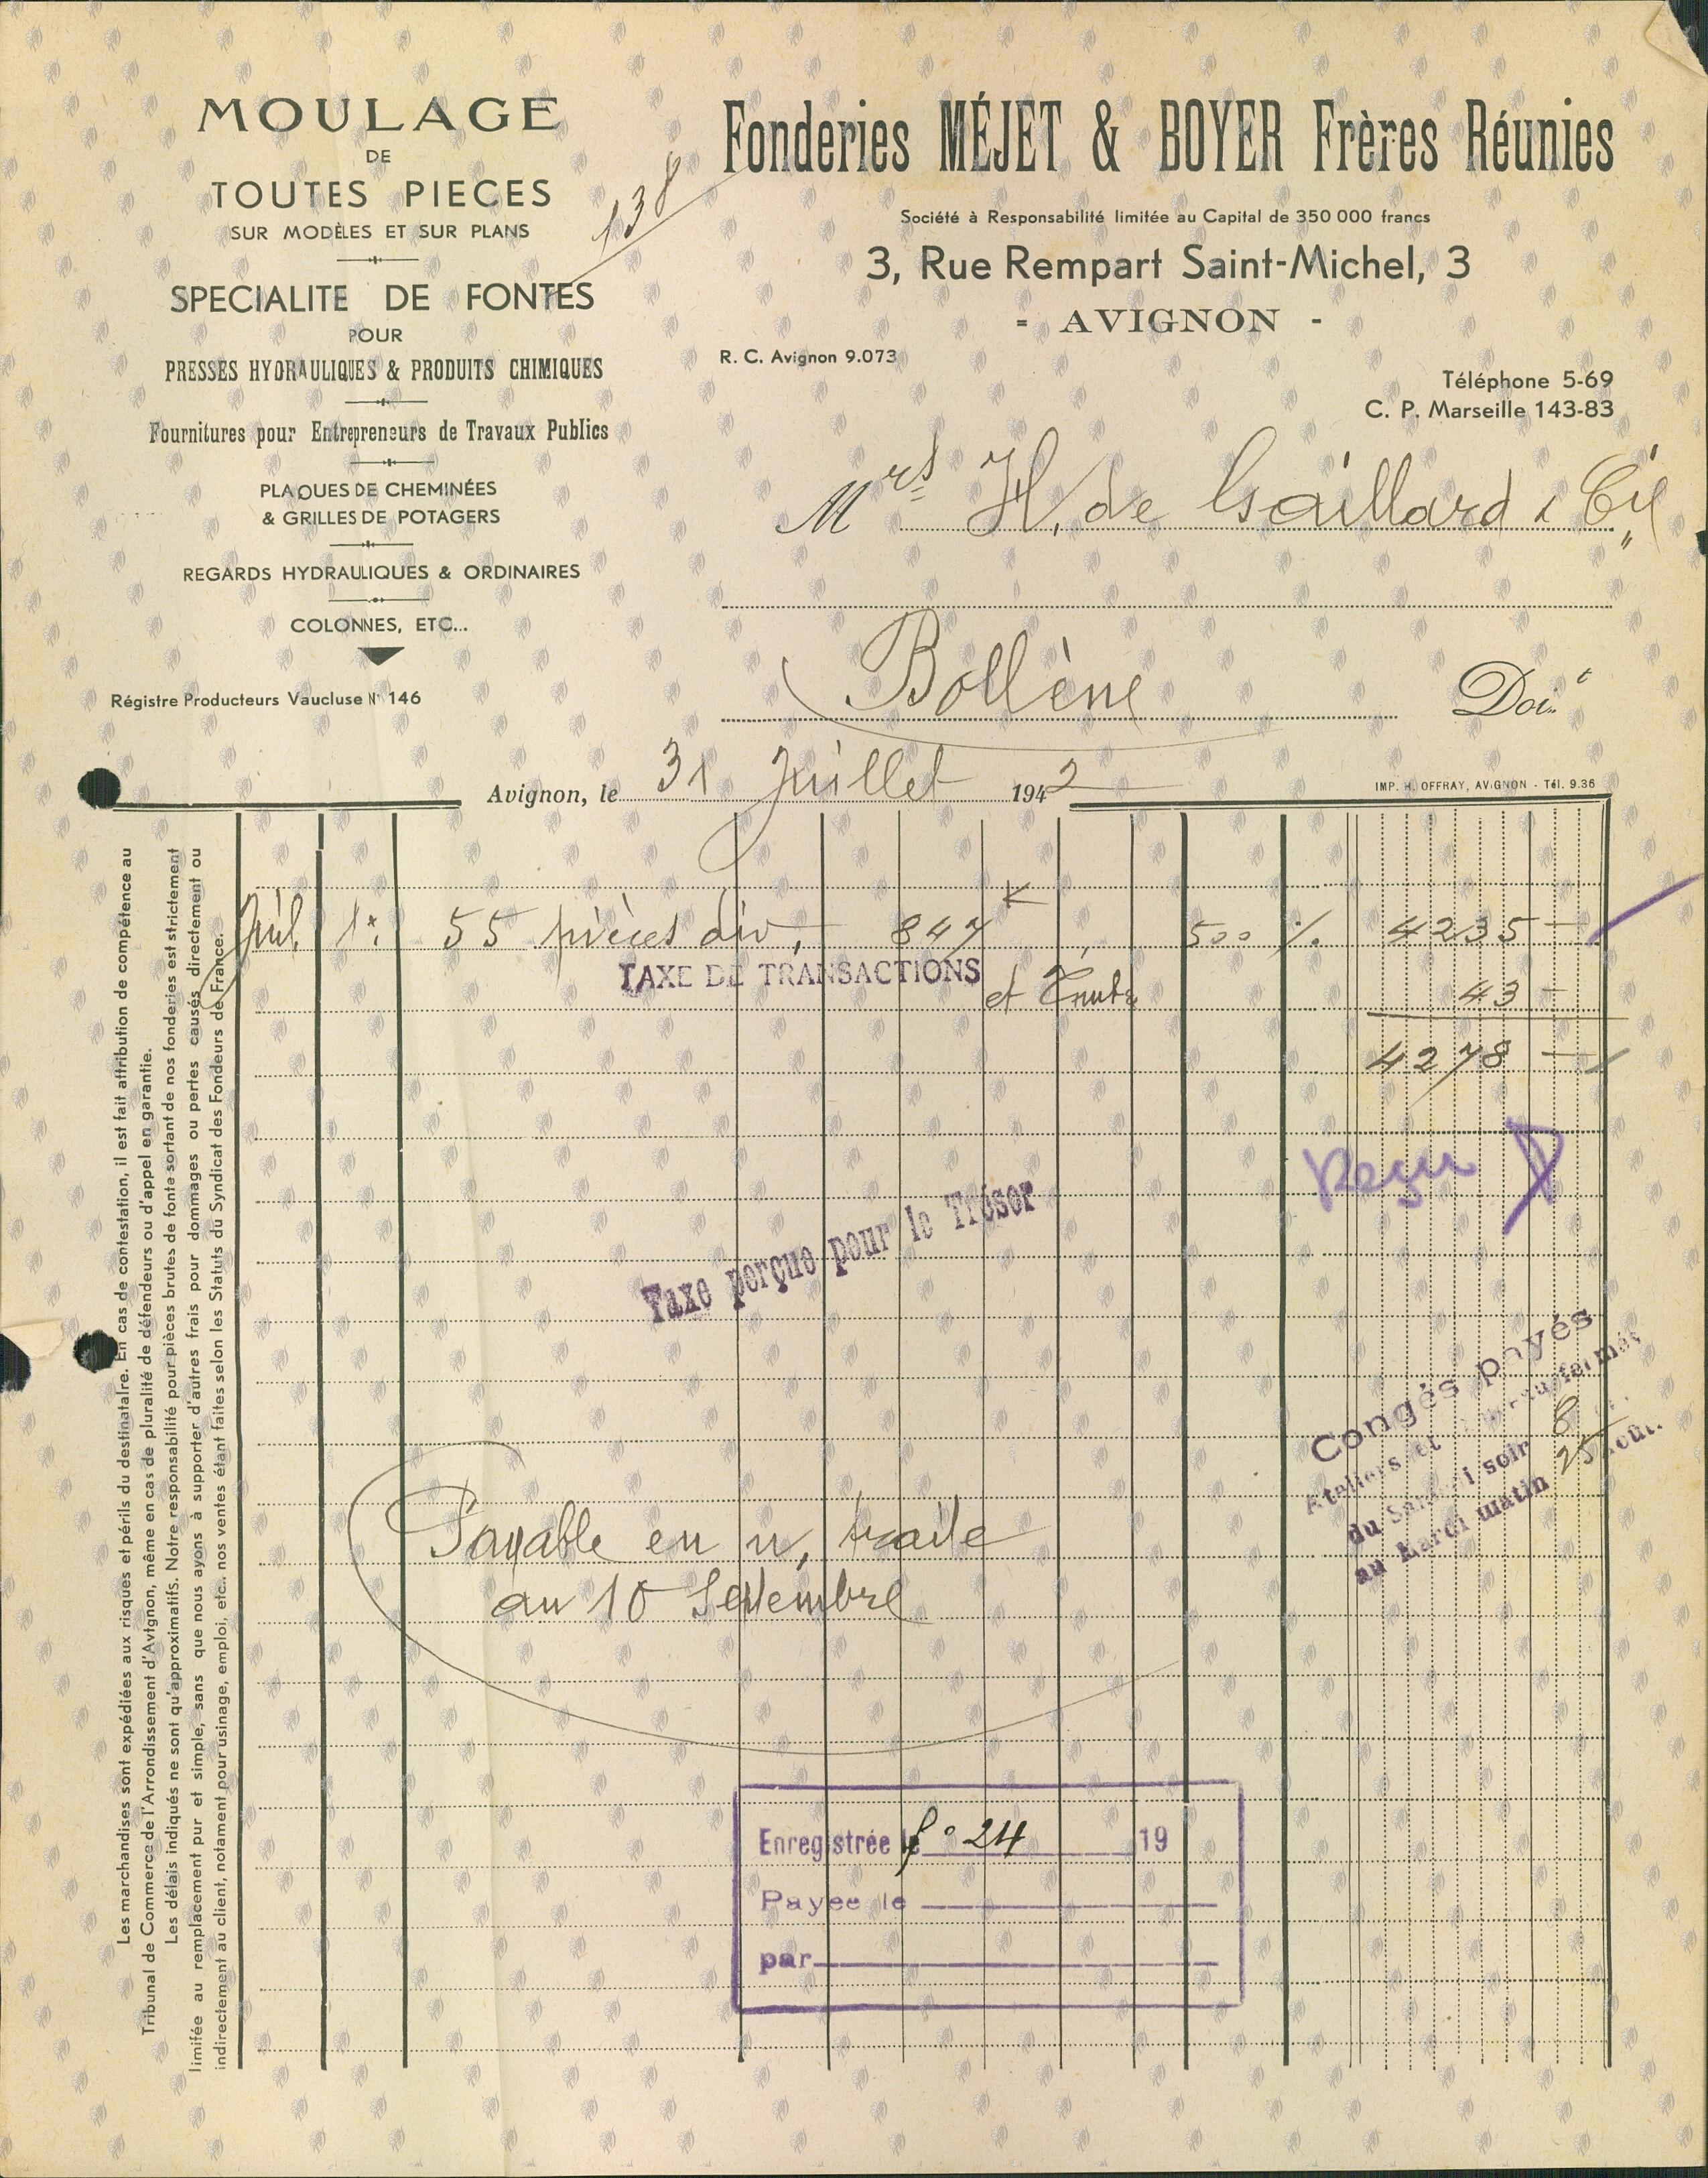 MOULAGE
DE
TOUTES PIECES
SUR MODÈLES ET SUR PLANS
SPECIALITE DE FONTES
POUR
PRESSES HYDRAULIQUES & PRODUITS CHIMIQUES
Fournitures pour Entrepreneurs de Travaux Publics
PLAQUES DE CHEMINÉES
& GRILLES DE POTAGERS
REGARDS HYDRAULIQUES & ORDINAIRES
COLONNES, ETC...
Régistre Producteurs Vaucluse N° 146
138
Fonderies MÉJET & BOYER Frères Réunies
Société à Responsabilité limitée au Capital de 350 000 francs
3, Rue Rempart Saint-Michel, 3
- AVIGNON -
R. C. Avignon 9.073
Téléphone 5-69
C. P. Marseille 143-83
Mrs H. de Gaillard & Cie
Bollène Doit
Avignon, le 31 Juillet 1942
IMP. H. OFFRAY, AVIGNON - Tél. 9.36
Juil. 1er 55 pièces div. 847 K 500 % 4235 —
TAXE DE TRANSACTIONS et Timbre 43 —
4278 —
Reçu
Taxe perçue pour le Trésor
Congés payés
Ateliers et Bureau fermés
du Samedi soir 8
au Mardi matin 25 Août.
Payable en n, traite
au 10 Septembre
Enregistrée le f° 24 19
Payée le
par
Les marchandises sont expédiées aux risques et périls du destinataire. En cas de contestation, il est fait attribution de compétence au
Tribunal de Commerce de l'Arrondissement d'Avignon, même en cas de pluralité de défendeurs ou d'appel en garantie.
Les délais indiqués ne sont qu'approximatifs. Notre responsabilité pour pièces brutes de fonte sortant de nos fonderies est strictement
limitée au remplacement pur et simple, sans que nous ayons à supporter d'autres frais pour dommages ou pertes causés directement ou
indirectement au client, notament pour usinage, emploi, etc.. nos ventes étant faites selon les Statuts du Syndicat des Fondeurs de France.